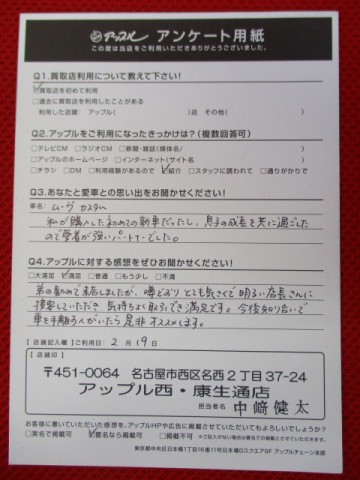 アップル アンケート用紙
この度は当店をご利用いただきありがとうございました。
Q1.買取店利用について教えて下さい!
☑買取店を初めて利用
□過去に買取店を利用したことがある
利用した店舗: アップル( )店 その他( )
Q2.アップルをご利用になったきっかけは?(複数回答可)
□テレビCM □ラジオCM □新聞・雑誌(媒体名/ )
□アップルのホームページ □インターネット(サイト名 )
□チラシ □DM □利用経験があるので ☑紹介 □スタッフに誘われて □通りがかりで
Q3.あなたと愛車との思い出をお聞かせください!
車名: ムーヴ カスタム
私が購入した初めての新車だったし、息子の成長を共に過ごした
ので愛着が強いパートナーでした。
Q4.アップルに対する感想をぜひお聞かせください!
□大満足 ☑満足 □普通 □もう少し □不満
弟の勧めで来店しましたが、噂どおり とても気さくで明るい店長さんに
接客していただき 気持ちよく取引でき満足です。今後知り合いで
車を手離す人がいたら是非オススメします。
【店舗記入欄】ご利用日: 2月 9日
【店舗印】
〒451-0064 名古屋市西区名西2丁目37-24
アップル西・康生通店
担当者名 中﨑健太
お客様に書いていただいた感想を、アップルHPや広告に掲載させていただいてもよろしいでしょうか?
□実名で掲載可 ☑匿名なら掲載可 □掲載不可 ※ご記入がない場合は匿名での掲載とさせていただきます。
東京都中央区日本橋1丁目16番11号日本橋Dスクエア8F アップルチェーン本部